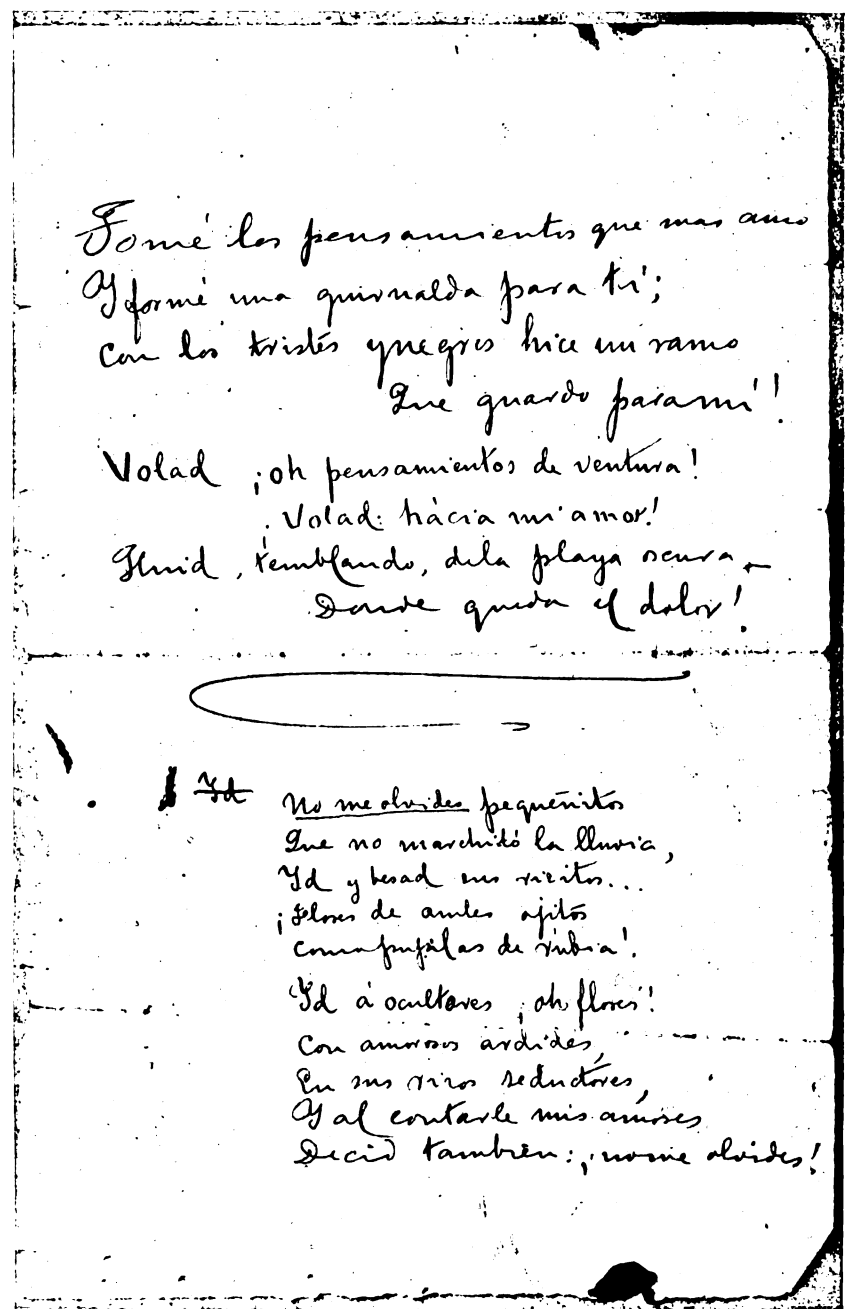 Tomé los pensamientos que mas amo
Y formé una guirnalda para tí;
Con los tristes y negros hice un ramo
Que guardo para mí!
Volad ¡oh pensamientos de ventura!
Volad: hácia mi amor!
Huid, temblando, de la playa oscura
Donde queda el dolor!
Yd
No me olvides pequeñitos
Que no marchitó la lluvia,
Yd y besad sus ricitos...
¡Flores de azules ojitos
Como pupilas de rubia!
Yd á ocultaros ¡oh flores!
Con amorosos ardides,
En sus rizos seductores,
Y al contarle mis amores
Decid tambien: ¡no me olvides!